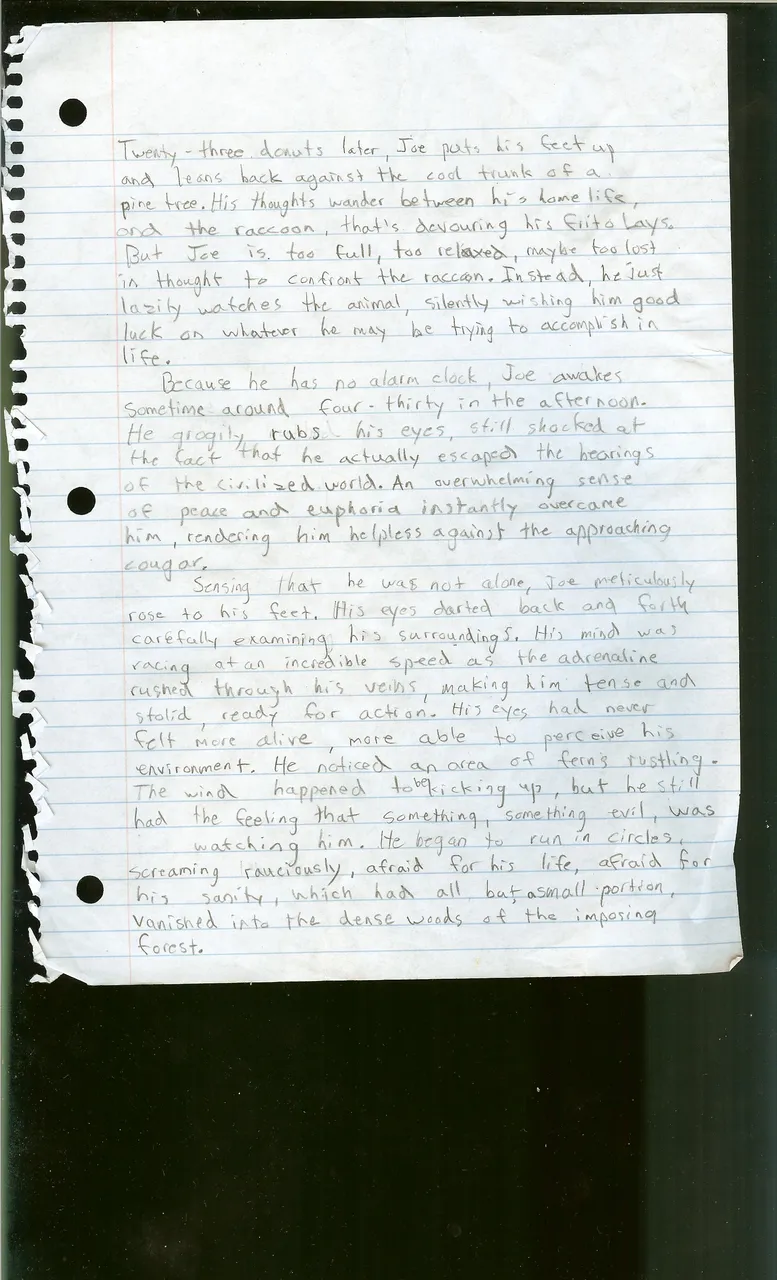 Twenty-three donuts later, Joe puts his feet up
and leans back against the cool trunk of a
pine tree. His thoughts wander between his home life,
and the raccoon, that's devouring his Frito Lays.
But Joe is too full, too relaxed, maybe too lost
in thought to confront the raccoon. Instead, he just
lazily watches the animal, silently wishing him good
luck on whatever he may be trying to accomplish in
life.
Because he has no alarm clock, Joe awakes
sometime around four-thirty in the afternoon.
He grogily rubs his eyes, still shocked at
the fact that he actually escaped the bearings
of the civilized world. An overwhelming sense
of peace and euphoria instantly overcame
him, rendering him helpless against the approaching
cougar.
Sensing that he was not alone, Joe meticulously
rose to his feet. His eyes darted back and forth
carefully examining his surroundings. His mind was
racing at an incredible speed as the adrenaline
rushed through his veins, making him tense and
stolid, ready for action. His eyes had never
felt more alive, more able to perceive his
environment. He noticed an area of ferns rustling.
The wind happened to be kicking up, but he still
had the feeling that something, something evil, was
watching him. He began to run in circles,
screaming rauciously, afraid for his life, afraid for
his sanity, which had all but a small portion,
vanished into the dense woods of the imposing
forest.